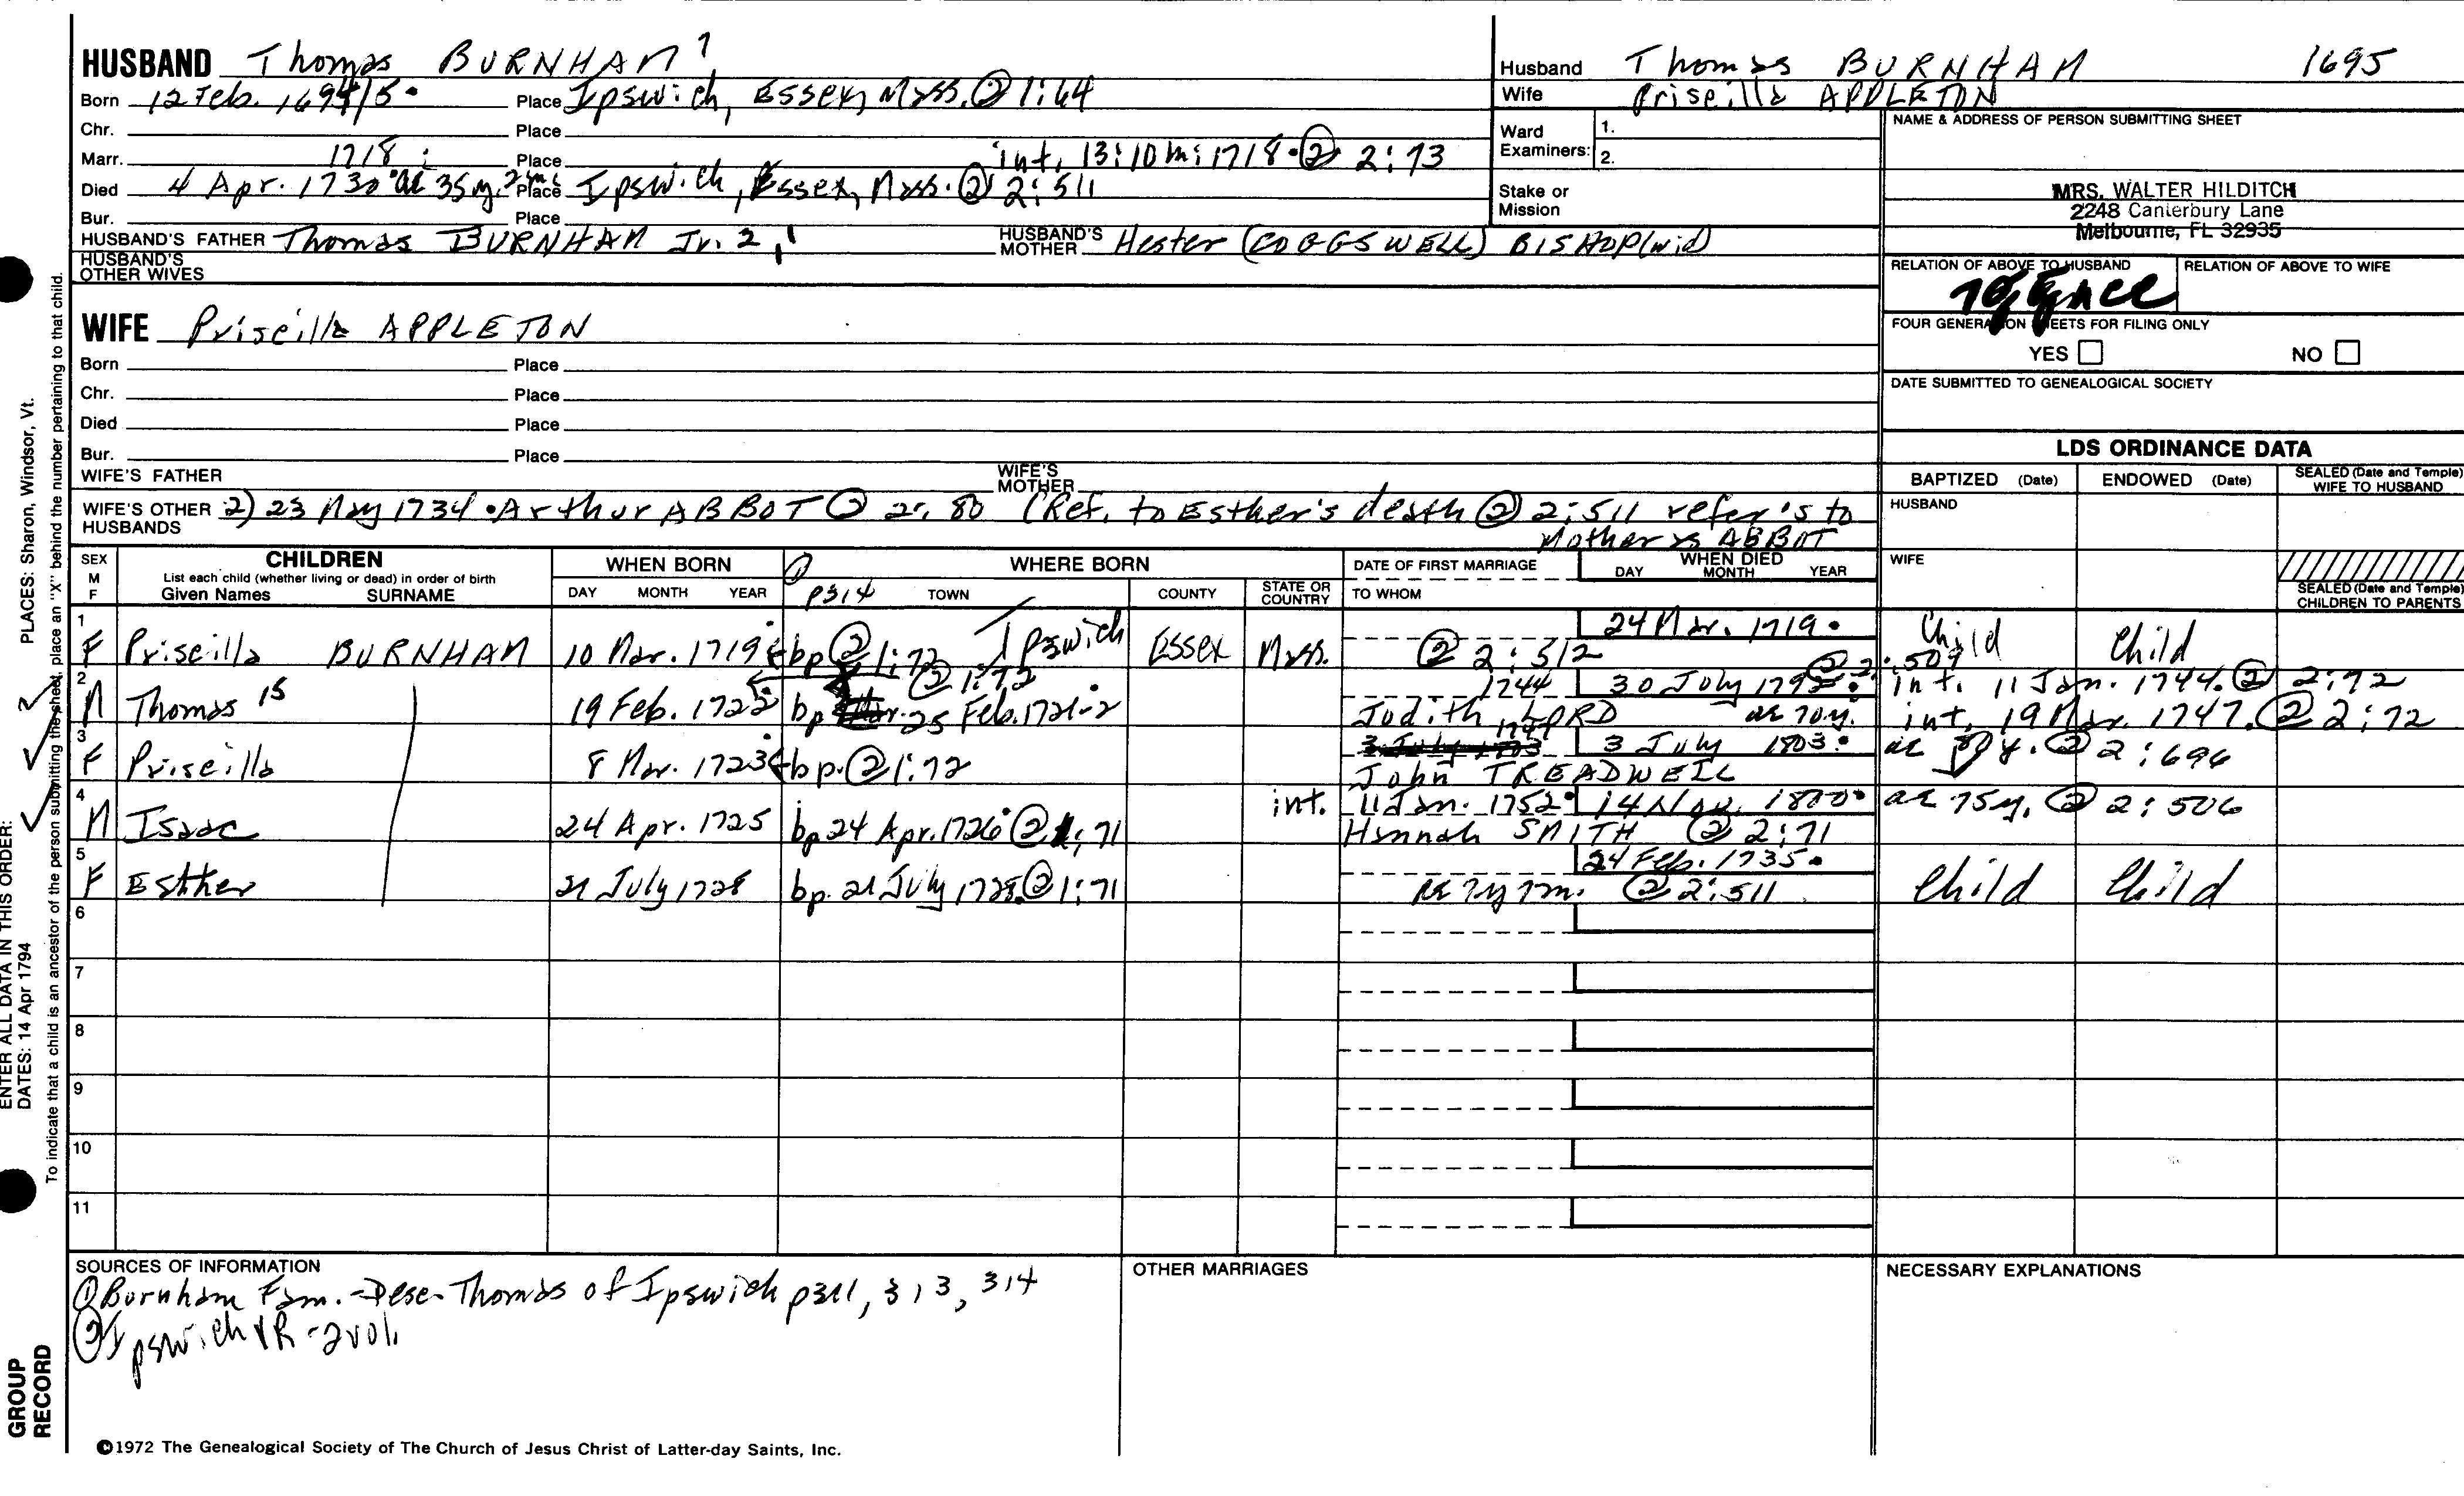 HUSBAND Thomas BURNHAM 7
Born 12 Feb. 1694/5. Place Ipswich, Essex, Mass. ② 1:64
Chr. Place
Marr. 1718 : Place int. 13:10m:1718. ② 2:73
Died 4 Apr. 1730 ae 35y. Place Ipswich, Essex, Mass. ② 2:511
Bur. Place
HUSBAND'S FATHER Thomas BURNHAM Jr. 2, 1 HUSBAND'S MOTHER Hester (COGGSWELL) BISHOP (wid)
HUSBAND'S OTHER WIVES
Husband Thomas BURNHAM 1695
Wife Priscilla APPLETON
Ward Examiners: 1.
2.
Stake or Mission
NAME & ADDRESS OF PERSON SUBMITTING SHEET
MRS. WALTER HILDITCH
2248 Canterbury Lane
Melbourne, FL 32935
RELATION OF ABOVE TO HUSBAND RELATION OF ABOVE TO WIFE
FOUR GENERATION SHEETS FOR FILING ONLY
YES NO
DATE SUBMITTED TO GENEALOGICAL SOCIETY
WIFE Priscilla APPLETON
Born Place
Chr. Place
Died Place
Bur. Place
WIFE'S FATHER WIFE'S MOTHER
WIFE'S OTHER HUSBANDS 2) 23 May 1734. Arthur ABBOT ② 2:80 (Ref. to Esther's death ② 2:511 refer's to
Mother as ABBOT
LDS ORDINANCE DATA
BAPTIZED (Date) ENDOWED (Date) SEALED (Date and Temple) WIFE TO HUSBAND
HUSBAND
WIFE
SEALED (Date and Temple) CHILDREN TO PARENTS
SEX M F
CHILDREN
List each child (whether living or dead) in order of birth
Given Names SURNAME
WHEN BORN
DAY MONTH YEAR
① p314
WHERE BORN
TOWN COUNTY STATE OR COUNTRY
DATE OF FIRST MARRIAGE
TO WHOM
WHEN DIED
DAY MONTH YEAR
1 24 Mar. 1719.
F Priscilla BURNHAM 10 Mar. 1719 bp ② 1:72 Ipswich Essex Mass. ② 2:512 Child Child
2 ② 1:72 1744 30 July 1792 ② 2:509 int. 11 Jan. 1744. ② 2:72
M Thomas 15 19 Feb. 1722 bp 25 Feb. 1721-2 Judith LORD ae 70y. int. 19 Mar. 1747. ② 2:72
3 1747 3 July 1803. ae y. ② 2:696
F Priscilla 8 Mar. 1723 bp. ② 1:72 John TREADWELL
4 int. 11 Jan. 1752. 14 Nov. 1800. ae 75y. ② 2:506
M Isaac 24 Apr. 1725 bp 24 Apr. 1726 ② 1:71 Hannah SMITH ② 2:71
5 24 Feb. 1735.
F Esther 21 July 1728 bp. 21 July 1728. ② 1:71 ae 7y 7m. ② 2:511 Child Child
6
7
8
9
10
11
SOURCES OF INFORMATION
① Burnham Fam. - Desc. Thomas of Ipswich p311, 313, 314
② Ipswich VR - 2 vol.
OTHER MARRIAGES
NECESSARY EXPLANATIONS
©1972 The Genealogical Society of The Church of Jesus Christ of Latter-day Saints, Inc.
ENTER ALL DATA IN THIS ORDER: PLACES: Sharon, Windsor, Vt.
DATES: 14 Apr 1794
To indicate that a child is an ancestor of the person submitting the sheet, place an "X" behind the number pertaining to that child.
GROUP RECORD